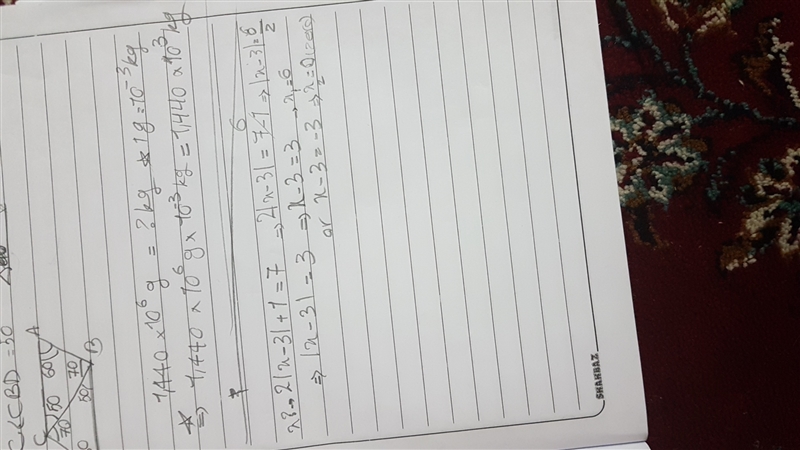 C<CBD = 50
C
A
50 60
70 70
50 B
1,440 × 10⁶ g = ? kg * 1g = 10⁻³ kg
* ⇒ 1,440 × 10⁶ g × 10⁻³ kg = 1,440 × 10³ kg
6
2|x-3| + 1 = 7 ⇒ 2|x-3| = 7-1 ⇒ |x-3| = 6/2
⇒ |x-3| = 3 ⇒ x-3 = 3 → x₁ = 6
or x-3 = -3 ⇒ x₂ = 0
SHAHBAZ